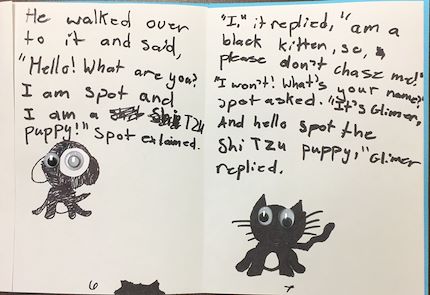 He walked over
to it and said,
"Hello! What are you?
I am spot and
I am a Shi TZu
puppy!" Spot exlaimed.
6
"I," it replied, "am a
black kitten, so,
please don't chase me!"
"I won't! What's your name?"
spot asked. "It's Glimer,
And hello spot the
Shi TZu puppy," Glimer
replied.
7